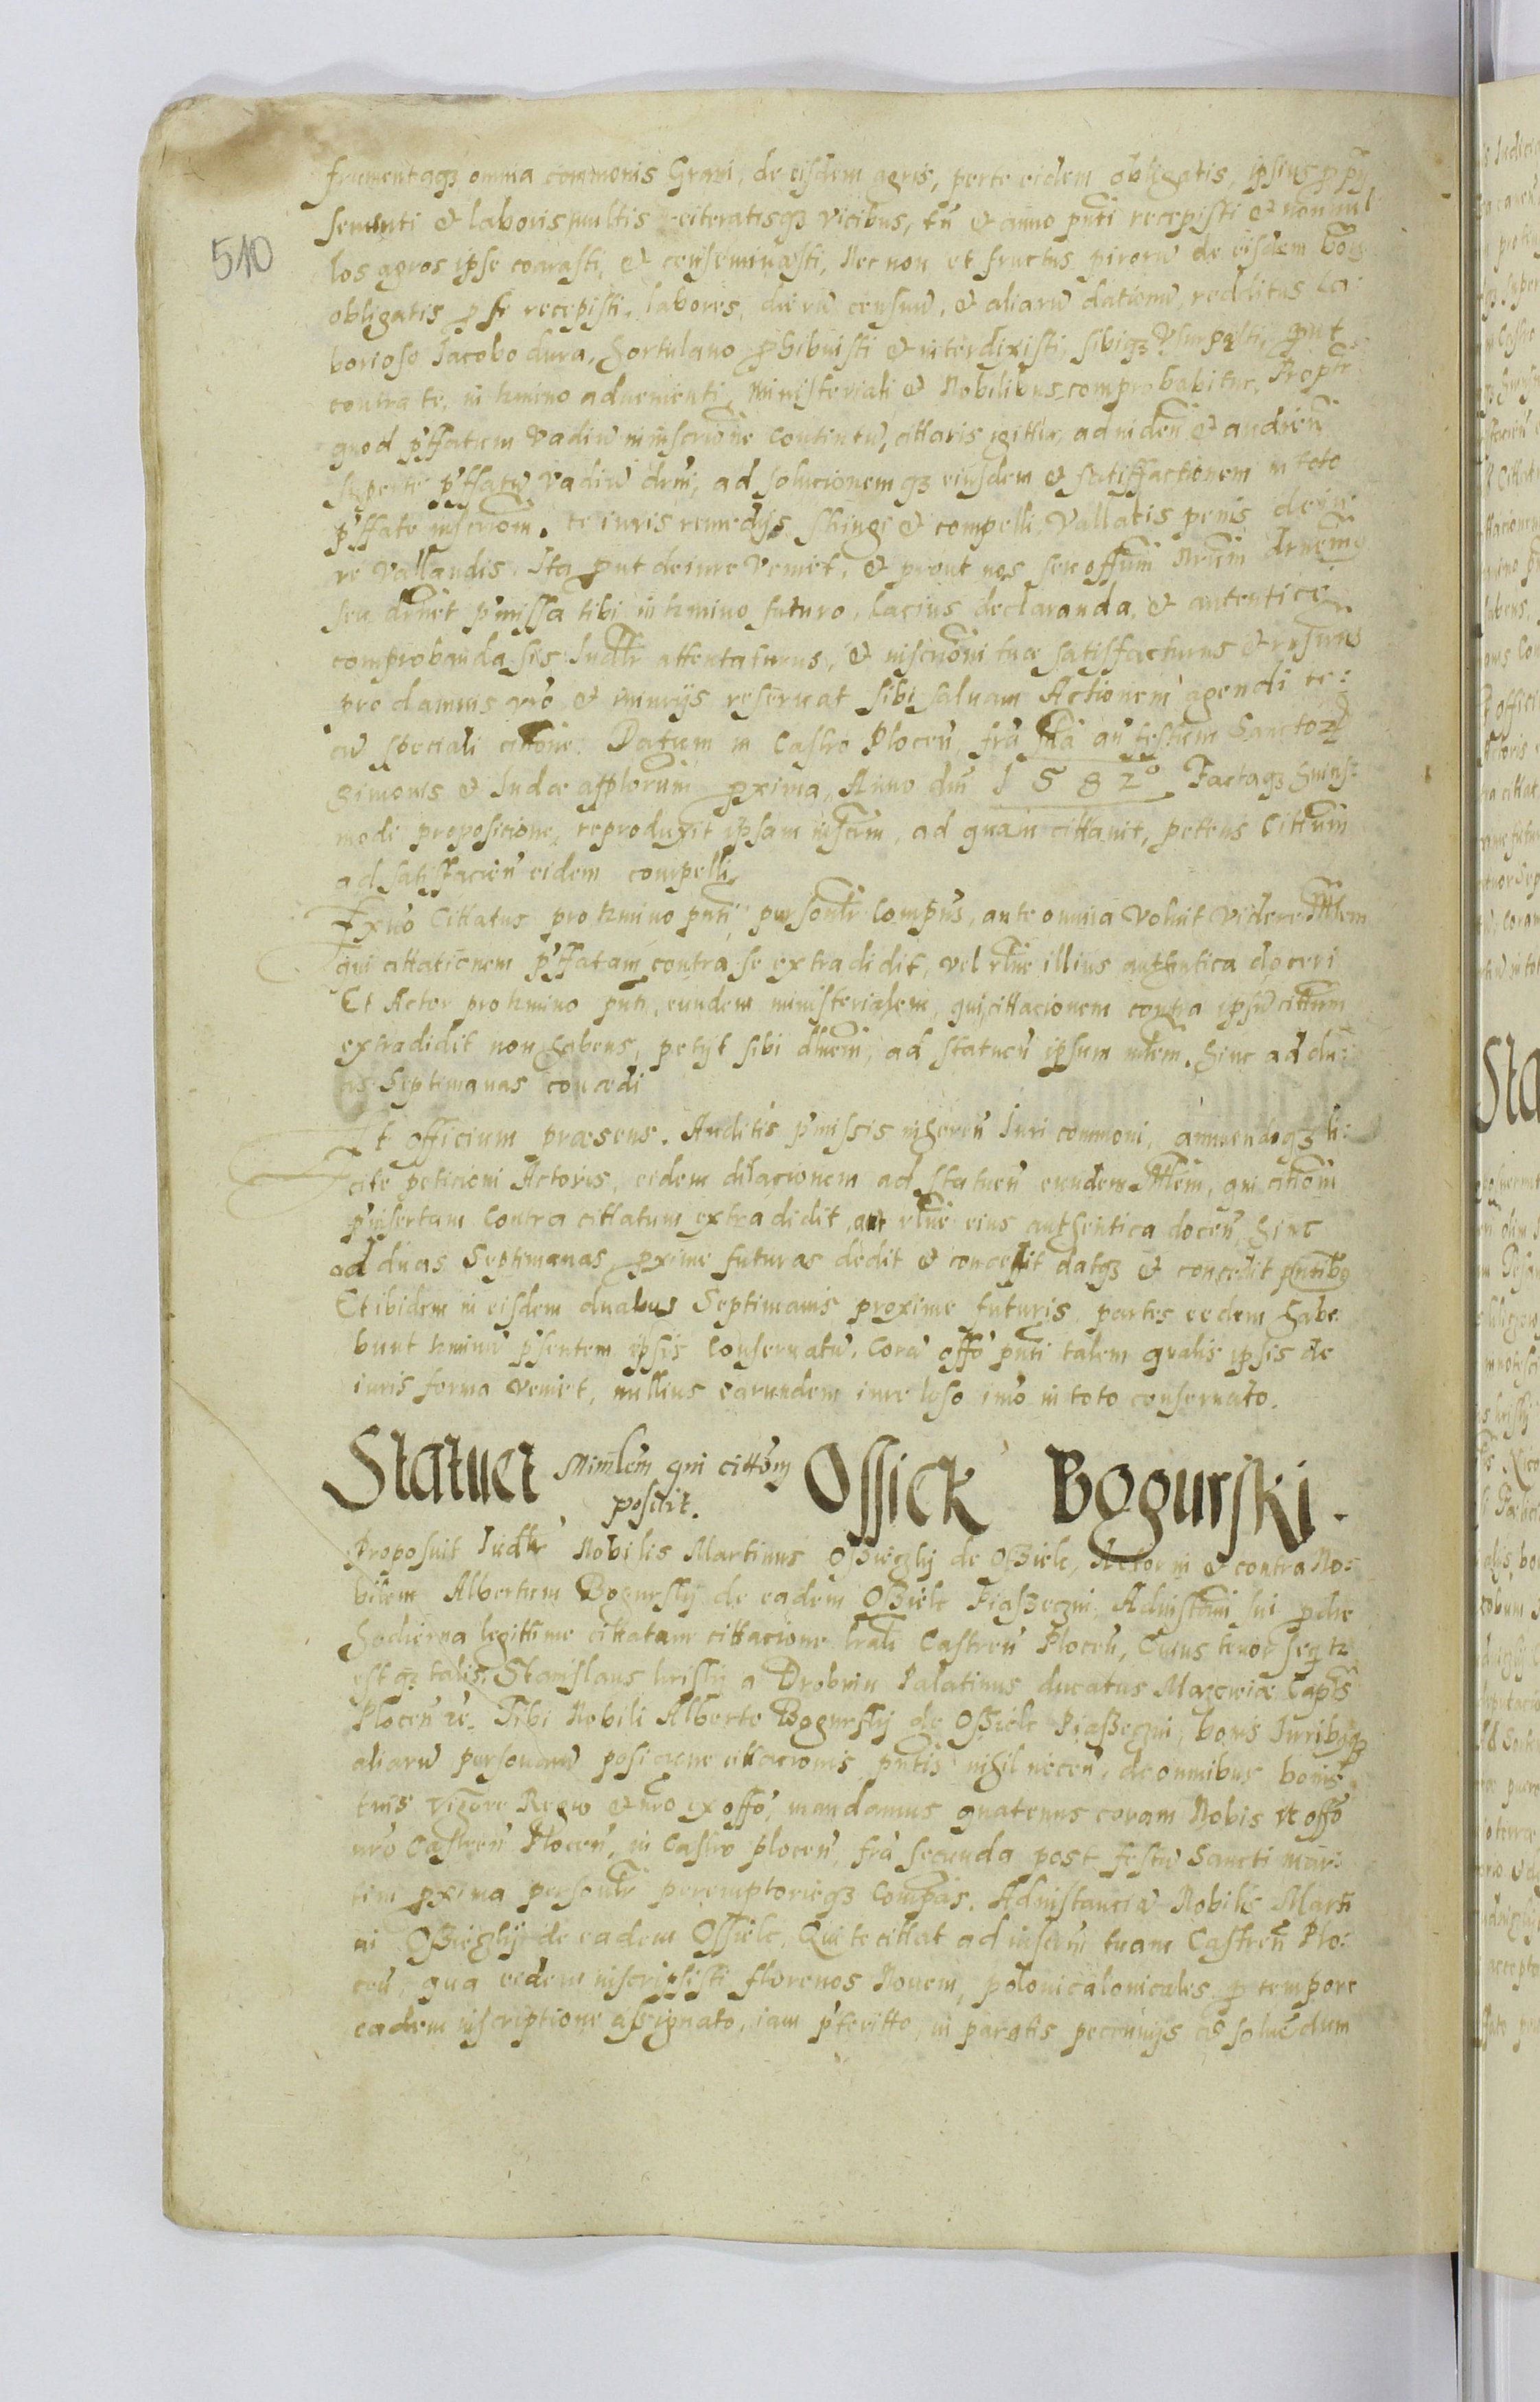 frumentaqz omnia commonis Grani, de eisdem agris, per te eidem obligatis, ipsius
sementi et laboris multis reiteratisqz vicibus, tn et anno pnti recepisti et nonnul
510
los agros ipse coarasti, et conseminasti, Nec non et fructus pirorū de eisdem bonis
obligatis p se recepisti, labores, dierū censuū, et aliarū dationū, redditus la:
borioso Jacobo dura, hortulano phibuisti et interdixisti, sibiqz vsurpasti, put
contra te, in tmino aduenienti, Ministeriali et Nobilibus comprobabitur, Propter
quod p'ffatum vadiū in inscrione contentū, cittaris igittur, ad viden et audien
super te p'ffatū vadiū, ad solucionemqz eiusdem et satisffactionem in toto
p'ffate inscriom. te iuris remedijs stringi et compelli, vallatis penis de iu
re vallandis. Ita put de iure veniet, et prout nos seu offum nrum
seu p'missa tibi in tmino futuro, lacius declaranda, et autentice
comprobanda sis Judtr attentaturus, et inscrioni tuæ satisfacturus et rnsurus
pro damnis vro et iniurijs reseruat sibi saluam Actionem agendi te:
cū speciali cittone. Datum in Castro Plocen, fria an festum Sanctoꝝ
Simonis et Judæ applorum pxima, Anno dni 1582° Factaqz huius=
modi proposicione, reproduxit ipsam inscrm, ad quam cittauit, petens Cittatum
ad satisffacien eidem compelli
Exuo Cittatus pro tmino pnti, personlr Compns, ante omnia voluit videre
qui cittationem p'ffatam contra se extradidit, vel rlne illius authentica doceri
Et Actor pro tmino pnti, eundem ministerialem, qui cittacionem contra ipsū cittum
extradidit non habens, petijt sibi, ad statuen ipsum. hinc ad du:
as Septimanas concedi
Et officium præsens. Auditis p'missis inheren Juri commoni, annuendoqz li:
cite peticioni Actoris, eidem dilacionem ad statuen eundem, qui cittoni
p'insertam Contra cittatum extradidit, aut rlne eius authentica docen, hinc
ad duas Septimanas pxime futuras dedit et concessit datqz et concedit pntibo
Et ibidem in eisdem duabus Septimanis proxime futuris partes eedem habe
bunt tminū p'sentem ipsis Conseruatū. Corā offo pnti talem qualis ipsis de
iuris forma veniet, nullius earundem iure leso imo in toto conseruato.
Statuet Minlem qui cittom Ossiek Bogurski.
posuit.
Proposuit Judtr Nobilis Martinus Osziegkij de Osziek, Actor in et contra No:
bilem Albertum Bogurskij de eadem Osziek Piaszeczni, Adinstam sui p die
hodierna legittime cittatum cittacione Castren Plocen, Cuius tenor seqtr
estqz talis. Stanislaus kriskij a Drobnin Palatinus ducatus Mazouiæ Capts
Plocen rc. Tibi Nobili Alberto Bogurskij de Osziek Piaszeczni, bonis Juribqz
aliarū personarū posicione cittacionis pntis nihil nocen, de omnibus bonis
tuis vigore Regio et nro ex offo, mandamus quatenus coram Nobis vt offo
nro Castren Plocen, in Castro Plocen, fria secunda post festū Sancti Mar:
tini pxima personlr peremptorieqz Compas. Adinstanciā Nobilis Marti
ni Osziegkij de eadem Ossiek, Qui te cittat ad inscrm tuam Castren Plo:
cen, qua eidem inscripsisti florenos Nouem, polonicalonicales p tempore
eadem inscriptione assignato, iam p'teritto, in paratis peccunijs ad soluēdum